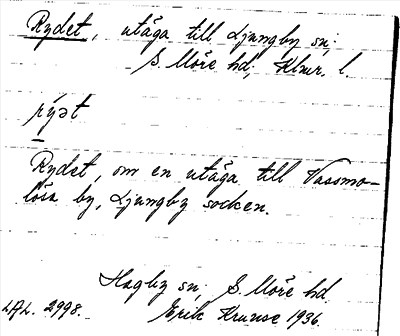 Rydet, utäga till Ljungby sn;
S. Möre hd; Klmr. l.
rýət
Rydet, om en utäga till Vassmo-
lösa by, Ljungby socken.
Hagby sn, S. Möre hd.
LAL. 2998. Erik Kruuse 1936